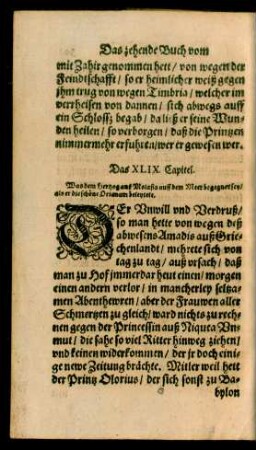 Das zehende Buch vom
mit Zahir genommen hett / von wegen der
Feindtschafft / so er heimlicher weiß gegen
jhm trug von wegen Timbria / welcher im
verrheisen von dannen / sich abwegs auff
ein Schlossz begab / da ließ er seine Wun-
den heilen / so verborgen / daß die Printzen
nimmermehr erfuhrẽ / wer er gewesen wer.
Das XLIX Capitel.
Was dem Hertzog auß auff dem Meer begegnet sey /
als er die schöne beleytete.
DEr Vnwill vnd Verdruß /
so man hette von wegen deß
abwesens Amadis auß Grie-
chenlandt / mehrete sich von
tag zu tag / auß vrsach / daß
man zu Hof immerdar heut einen / morgen
einen andern verlor / in mancherley seltza-
men Abenthewren / aber der Frauwen aller
Schmertzen zu gleich / ward nichts zu rech-
nen gegen der Princessin auß Niquea Vn-
mut / die sahe so viel Ritter hinweg ziehen /
vnd keinen widerkommen / der jr doch eini-
ge newe Zeitung brächte. Mitler weil hett
der Printz Olorius / der sich sonst zu Ba-
bylon